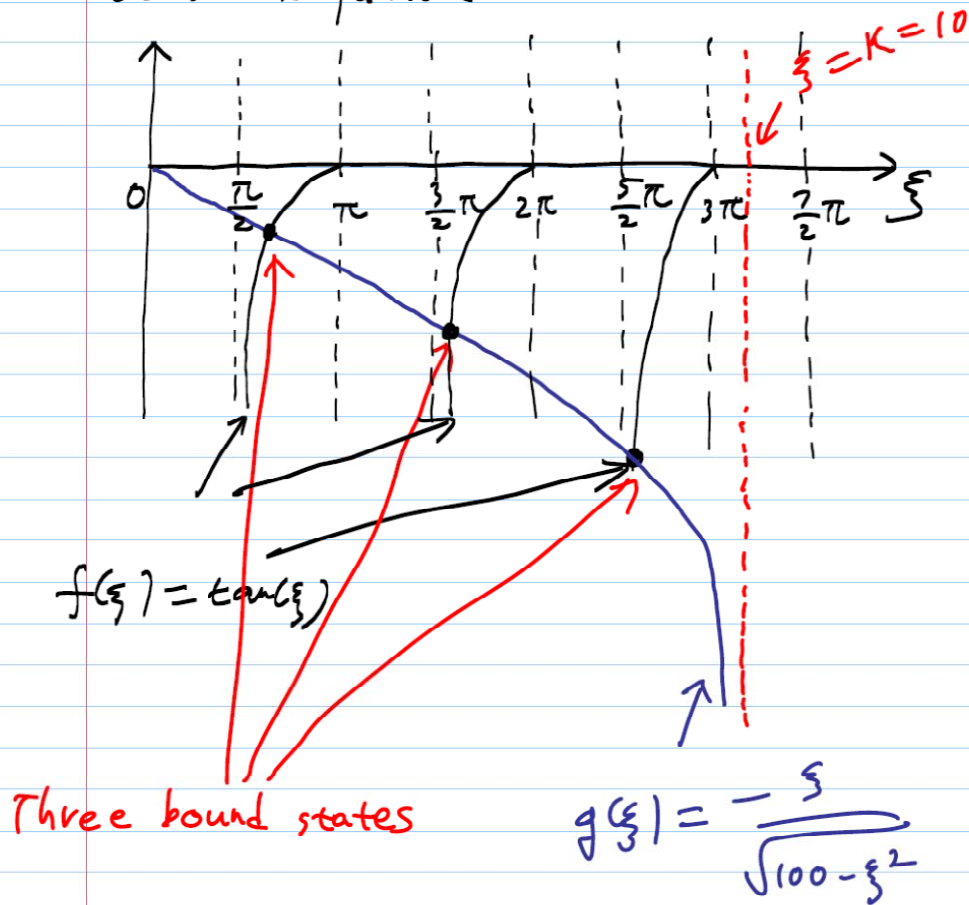 ξ = K = 10
0 π/2 π 3/2 π 2π 5/2 π 3π 7/2 π ξ
f(ξ) = tan(ξ)
Three bound states
g(ξ) = - ξ/√(100 - ξ²)